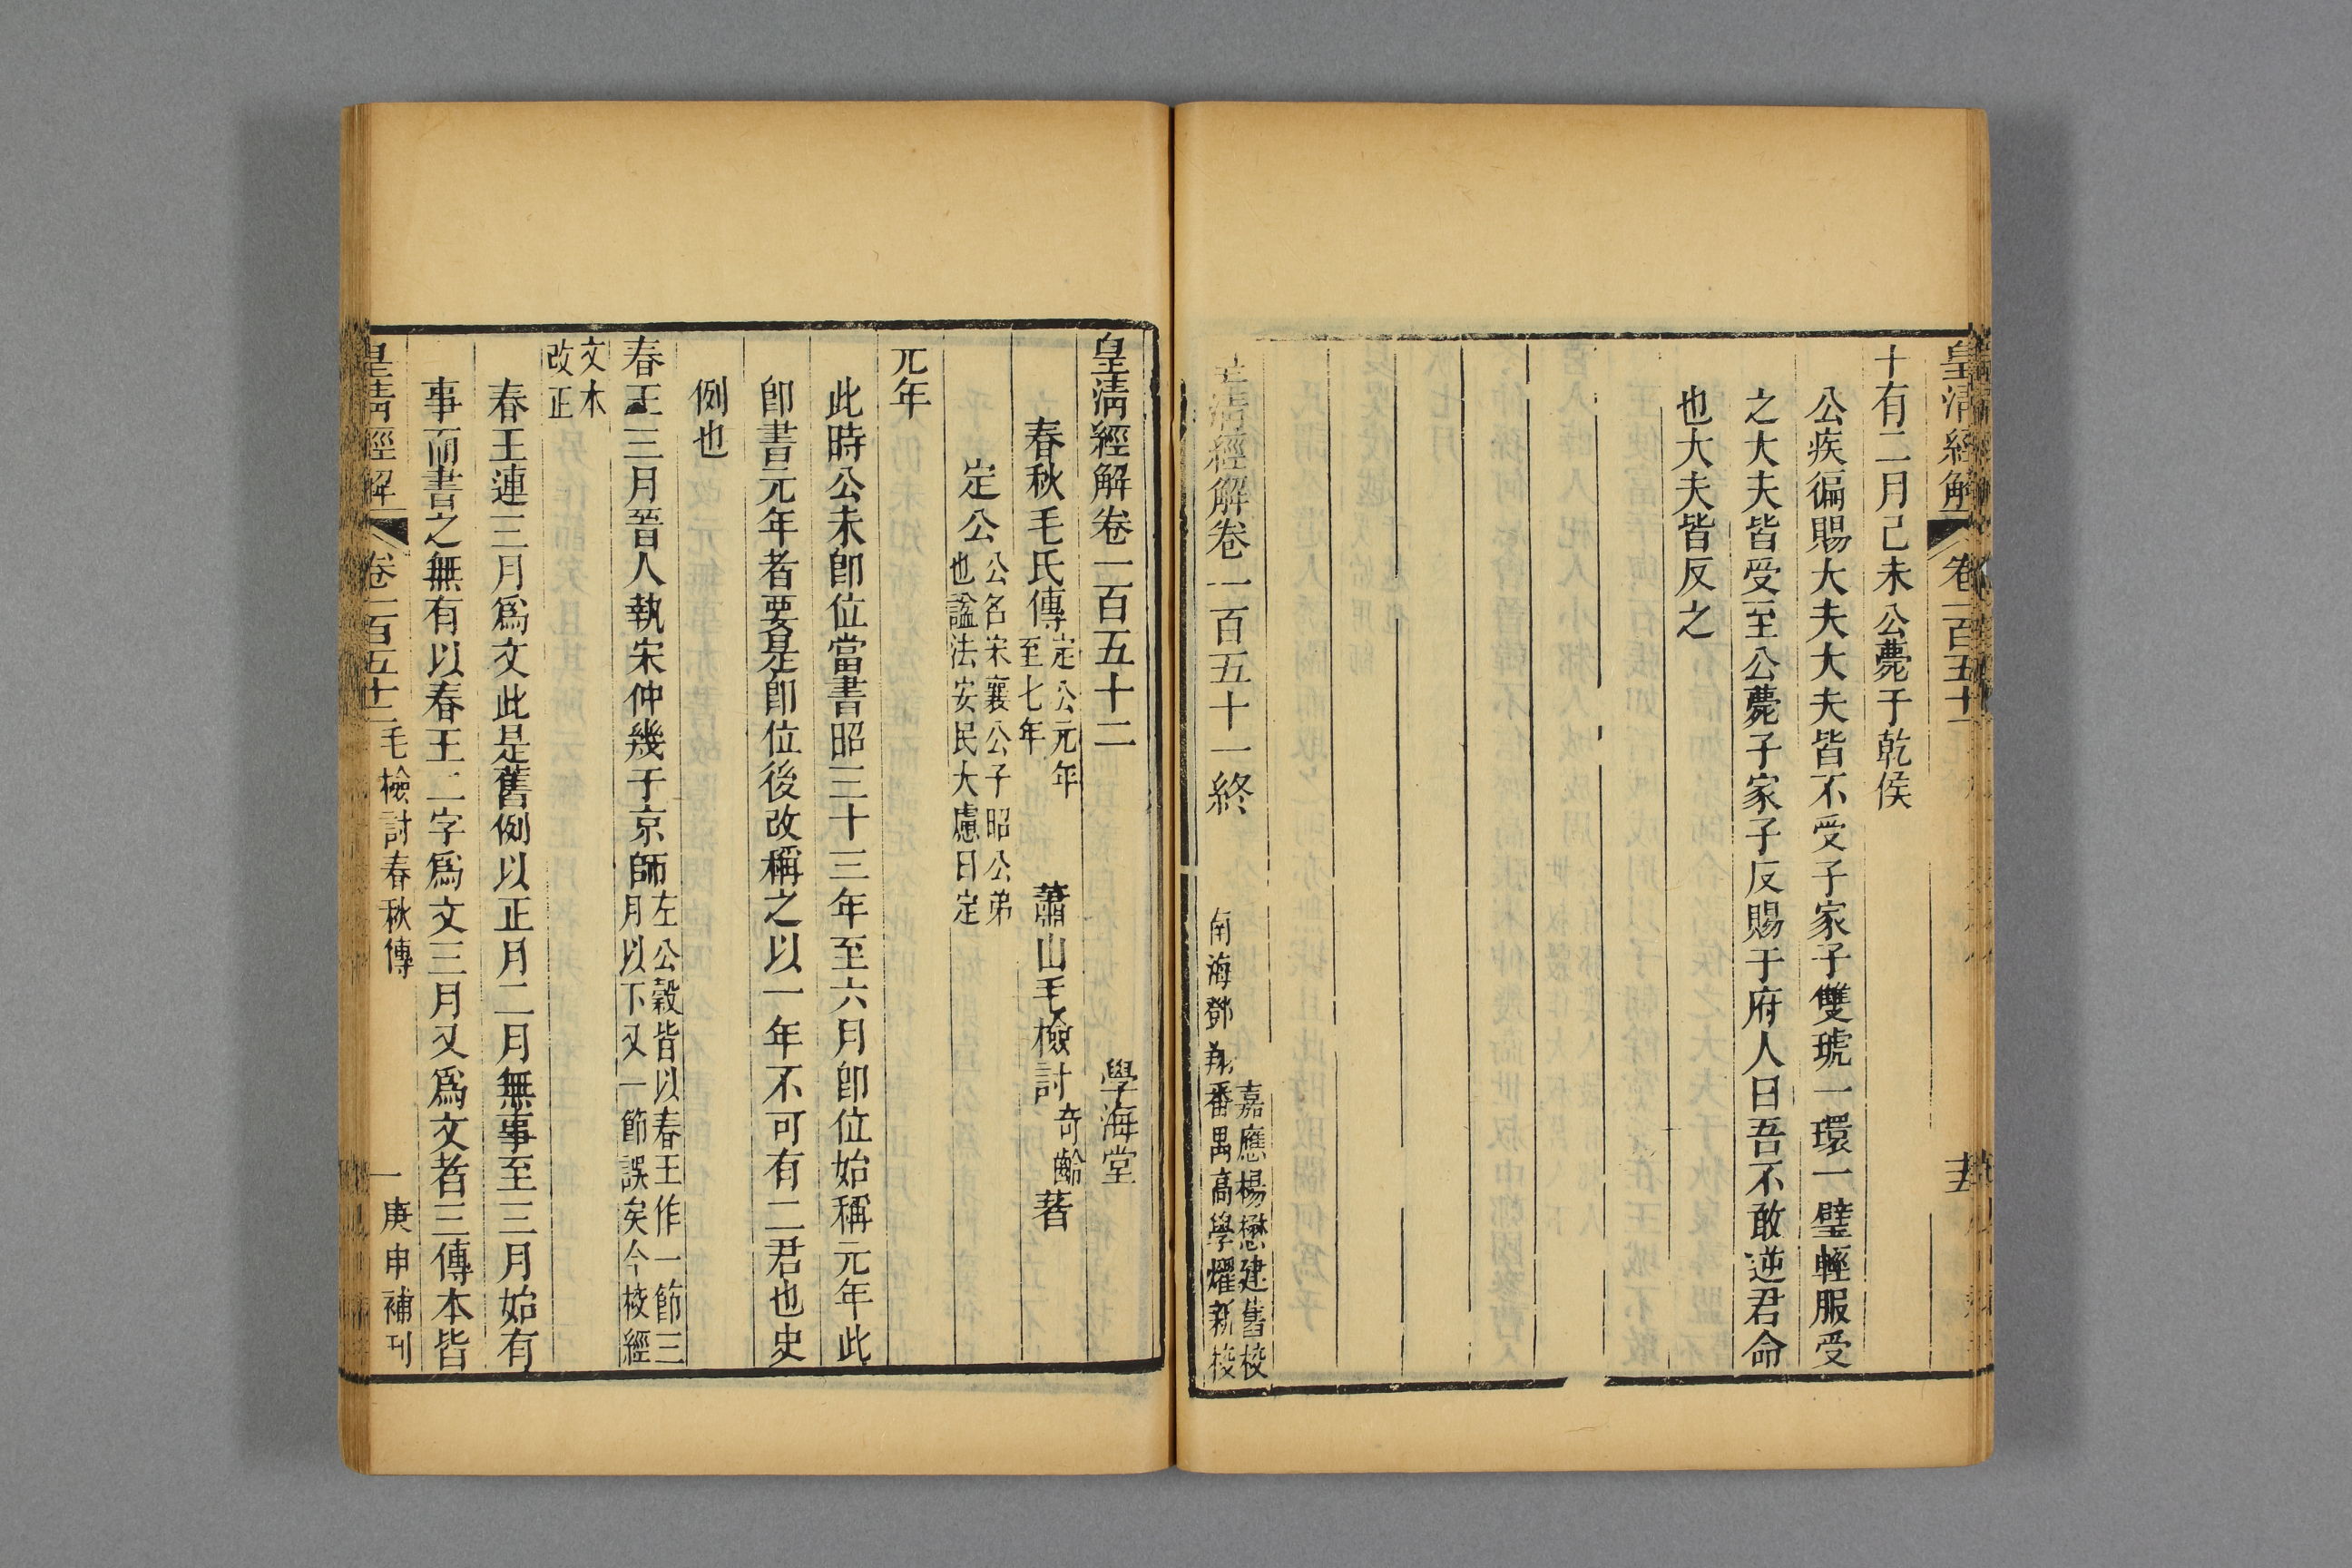 皇清經解
卷一百五十一
十有二月己未公薨于乾侯
公疾徧賜大夫大夫皆不受子家子雙琥一環一璧輕服受
之大夫皆受至公薨子家子反賜于府人曰吾不敢逆君命
也大夫皆反之
嘉應楊懋建舊校
南海鄧翔番禺高學燿新校
皇清經解卷一百五十一終
皇清經解卷一百五十二
學海堂
春秋毛氏傳定公元年至七年
蕭山毛檢討奇齡著
定公公名宋襄公子昭公弟也諡法安民大慮曰定
元年
此時公未卽位當書昭三十三年至六月卽位始稱元年此
卽書元年者要是卽位後改稱之以一年不可有二君也史
例也
春王三月晉人執宋仲幾于京師左公穀皆以春王作一節三月以下又一節誤矣今校經
文本改正
春王連三月爲文此是舊例以正月二月無事至三月始有
事而書之無有以春王二字爲文三月又爲文者三傳本皆
皇清經解
卷一百五十二
毛檢討春秋傳
一
庚申補刊